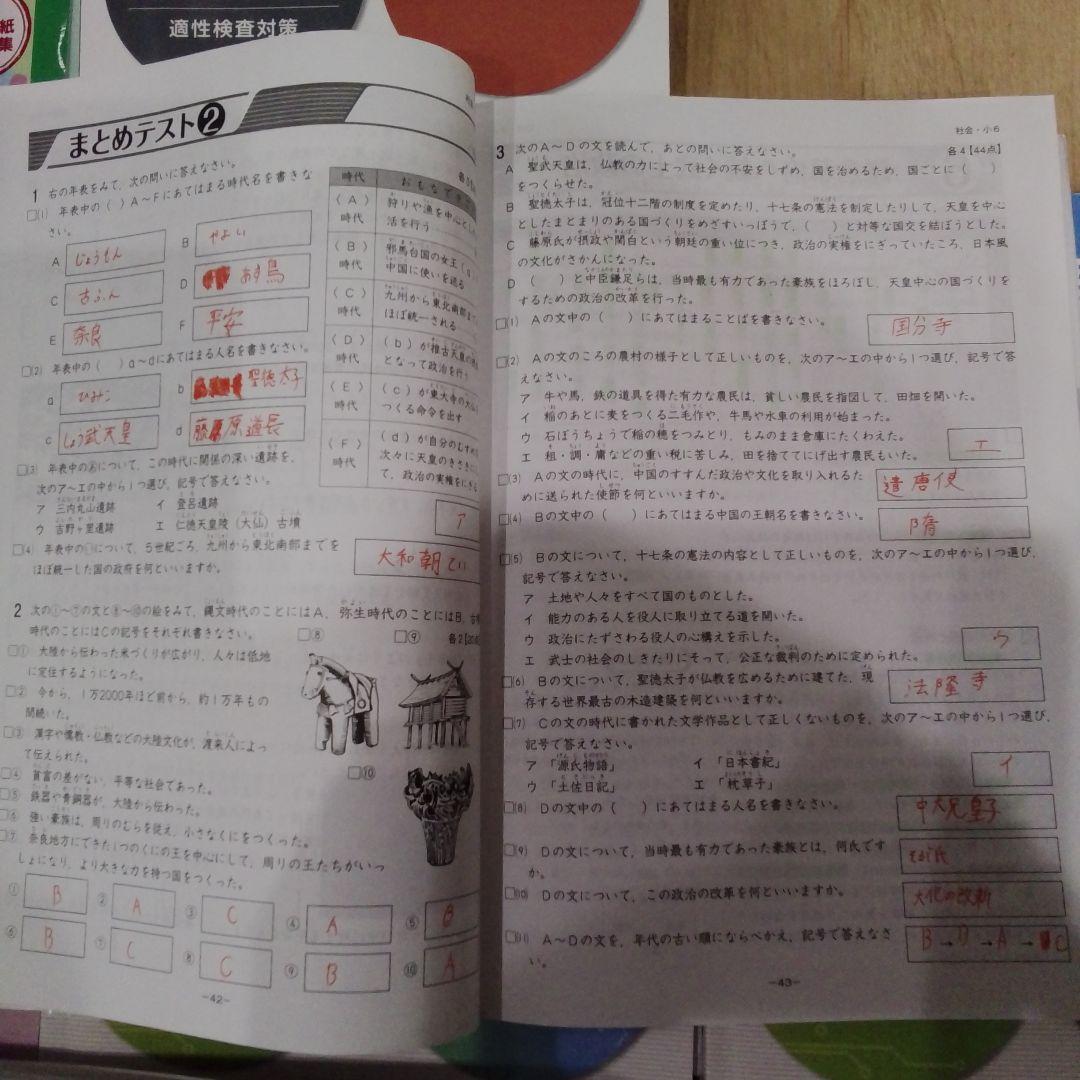 紙
集
適性検査対策
まとめテスト❷
1 右の年表をみて、次の問いに答えなさい。
□(1) 年表中の( )A~Fにあてはまる時代名を書きな
さい。
A じょうもん
B やよい
C 古ふん
D あす鳥
E 奈良
F 平安
□(2) 年表中の( )a~dにあてはまる人名を書きなさい。
a ひみこ
b 聖徳太子
c しょう武天皇
d 藤原道長
□(3) 年表中のⒶについて、この時代に関係の深い遺跡を、
次のア~エの中から1つ選び、記号で答えなさい。
ア 三内丸山遺跡 イ 登呂遺跡
ウ 吉野ヶ里遺跡 エ 仁徳天皇陵(大仙)古墳
ア
□(4) 年表中の について、5世紀ごろ、九州から東北南部までを
ほぼ統一した国の政府を何といいますか。
大和朝てい
時代
おもなできご
(A)
時代
狩りや漁を中心とし
活を行う
(B)
時代
邪馬台国の女王(a)
中国に使いを送る
(C)
時代
九州から東北南部まで
ほぼ統一される
(D)
時代
(b)が推古天皇の摂
となって政治を行う
(E)
時代
(c)が東大寺の大仏
つくる命令を出す
(F)
時代
(d)が自分のむすめ
次々に天皇のきさきに
て、政治の実権をにぎる
2 次の①~⑦の文と⑧~⑩の絵をみて、縄文時代のことにはA、弥生時代のことにはB、古
時代のことにはCの記号をそれぞれ書きなさい。
各2【20
□① 大陸から伝わった米づくりが広がり、人々は低地
に定住するようになった。
□② 今から、1万2000年ほど前から、約1万年もの
間続いた。
□③ 漢字や儒教・仏教などの大陸文化が、渡来人によっ
て伝えられた。
□④ 貧富の差がない、平等な社会であった。
□⑤ 鉄器や青銅器が、大陸から伝わった。
□⑥ 強い豪族は、周りのむらを従え、小さなくにをつくった。
□⑦ 奈良地方にできた1つのくにの王を中心にして、周りの王たちがいっ
しょになり、より大きな力を持つ国をつくった。
□⑧
□⑨
□⑩
① B
② A
③ C
④ A
⑤ B
⑥ B
⑦ C
⑧ C
⑨ B
⑩ A
-42-
社会・小6
3 次のA~Dの文を読んで、あとの問いに答えなさい。
各4【44点】
A 聖武天皇は、仏教の力によって社会の不安をしずめ、国を治めるため、国ごとに( )
をつくらせた。
B 聖徳太子は、冠位十二階の制度を定めたり、十七条の憲法を制定したりして、天皇を中心
としたまとまりのある国づくりをめざすいっぽうで、( )と対等な国交を結ぼうとした。
C 藤原氏が摂政や関白という朝廷の重い位につき、政治の実権をにぎっていたころ、日本風
の文化がさかんになった。
D ( )と中臣鎌足らは、当時最も有力であった豪族をほろぼし、天皇中心の国づくりを
するための政治の改革を行った。
□(1) Aの文中の( )にあてはまることばを書きなさい。
国分寺
□(2) Aの文のころの農村の様子として正しいものを、次のア~エの中から1つ選び、記号で答
えなさい。
ア 牛や馬、鉄の道具を得た有力な農民は、貧しい農民を指図して、田畑を開いた。
イ 稲のあとに麦をつくる二毛作や、牛馬や水車の利用が始まった。
ウ 石ぼうちょうで稲の穂をつみとり、もみのまま倉庫にたくわえた。
エ 租・調・庸などの重い税に苦しみ、田を捨ててにげ出す農民もいた。
エ
□(3) Aの文の時代に、中国のすすんだ政治や文化を取り入れるた
めに送られた使節を何といいますか。
遣唐使
□(4) Bの文中の( )にあてはまる中国の王朝名を書きなさい。
隋
□(5) Bの文について、十七条の憲法の内容として正しいものを、次のア~エの中から1つ選び、
記号で答えなさい。
ア 土地や人々をすべて国のものとした。
イ 能力のある人を役人に取り立てる道を開いた。
ウ 政治にたずさわる役人の心構えを示した。
エ 武士の社会のしきたりにそって、公正な裁判のために定められた。
ウ
□(6) Bの文について、聖徳太子が仏教を広めるために建てた、現
存する世界最古の木造建築を何といいますか。
法隆寺
□(7) Cの文の時代に書かれた文学作品として正しくないものを、次のア~エの中から1つ選び、
記号で答えなさい。
ア 「源氏物語」 イ 「日本書紀」
ウ 「土佐日記」 エ 「枕草子」
イ
□(8) Dの文中の( )にあてはまる人名を書きなさい。
中大兄皇子
□(9) Dの文について、当時最も有力であった豪族とは、何氏です
か。
そが氏
□(10) Dの文について、この政治の改革を何といいますか。
大化の改新
□(11) A~Dの文を、年代の古い順にならべかえ、記号で答えなさ
い。
B→D→A→C
-43-